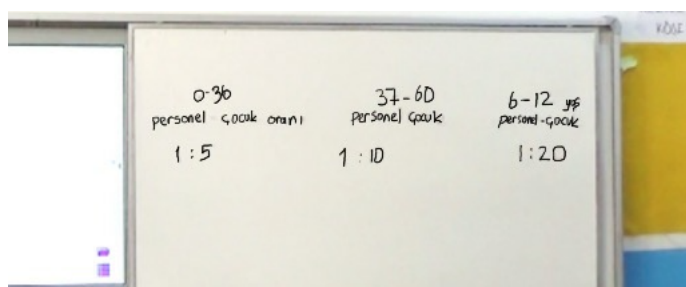 0-36
personel çocuk oranı
1 : 5
37-60
personel çocuk
1 : 10
6-12 yaş
personel-çocuk
1 : 20